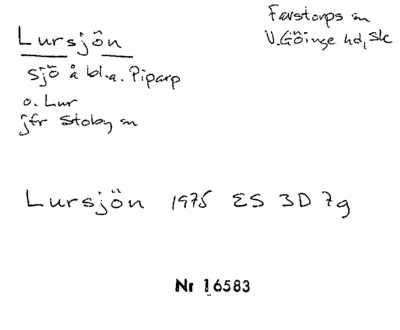 Lursjön
sjö å bl.a. Piparp
o. Lur
jfr Stoby sn
Farstorps sn
V. Göinge hd, Sk
Lursjön 1975 ES 3D 7g
Nr 16583